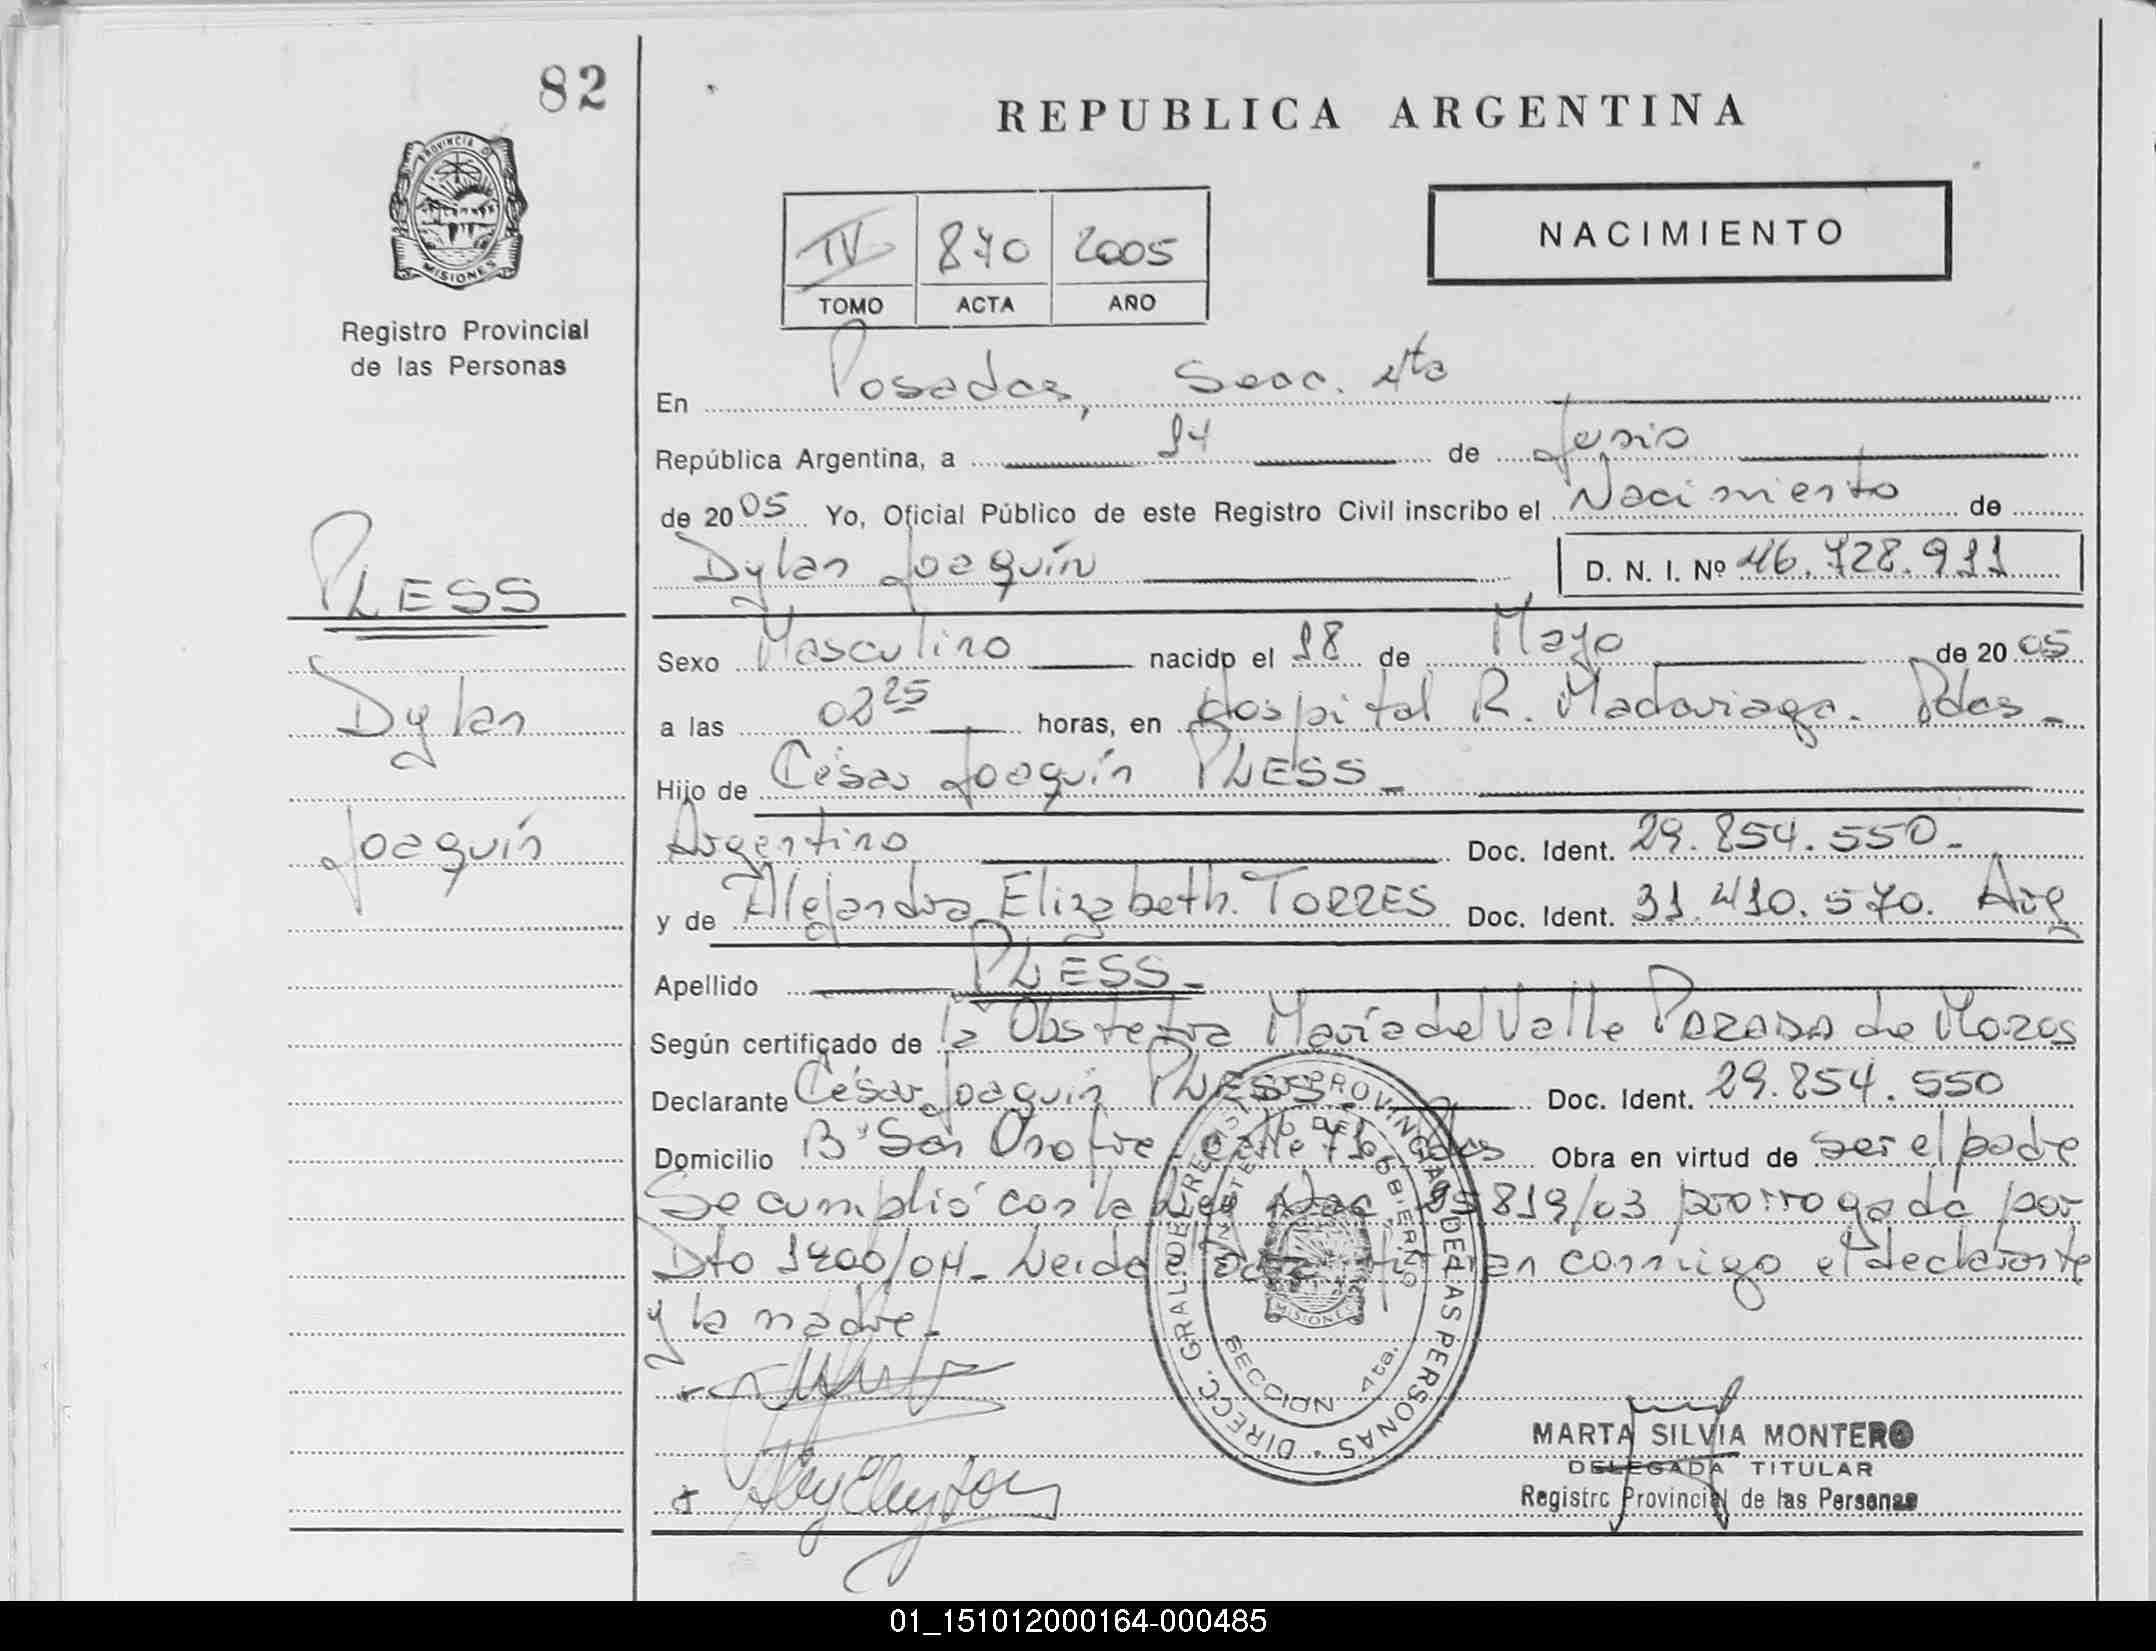 82
PROVINCIA DE
MISIONES
Registro Provincial
de las Personas
PLESS
Dylan
Joaquín
REPUBLICA ARGENTINA
NACIMIENTO
IV 870 2005
TOMO ACTA AÑO
En Posadas, Secc. 4ta
República Argentina, a 14 de Junio
de 2005 Yo, Oficial Público de este Registro Civil inscribo el Nacimiento de
Dylan Joaquín D. N. I. Nº 46.728.911
Sexo Masculino nacido el 18 de Mayo de 2005
a las 02 25 horas, en Hospital R. Madariaga. Pdas.
Hijo de César Joaquín PLESS
Argentino Doc. Ident. 29.854.550.
y de Alejandra Elizabeth TORRES Doc. Ident. 31.410.570. Arg
Apellido PLESS
Según certificado de la Obstetra María del Valle PARADA de Moros
Declarante César Joaquín PLESS Doc. Ident. 29.854.550
Domicilio Bº San Onofre calle 76 Pdas Obra en virtud de ser el padre
Se cumplió con la Ley Nac. 25819/03 prorrogada por
Dto 1200/04. Leida firman conmigo el declarante
y la madre.
DIRECC. GRAL. DE REGISTRO PROVINCIAL DE LAS PERSONAS
MINISTERIO DE GOBIERNO
MISIONES
SECCION 4ta.
MARTA SILVIA MONTERO
DELEGADA TITULAR
Registro Provincial de las Personas
01_151012000164-000485